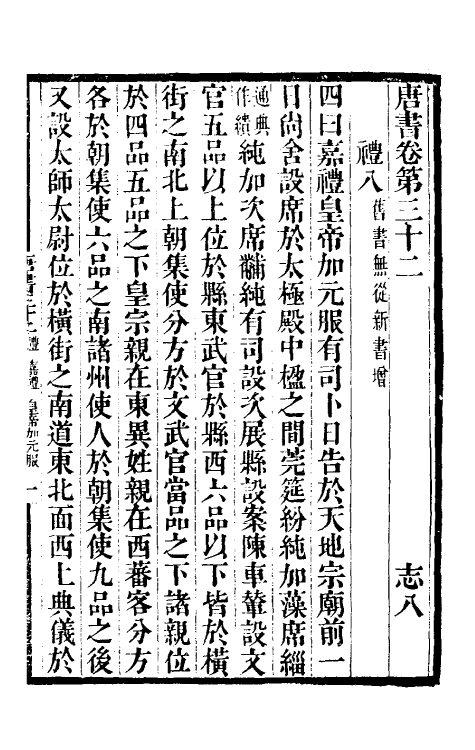 唐書卷第三十二　志八
禮八 舊書無從新書增
四曰嘉禮皇帝加元服有司卜日告於天地宗廟前一
日尚舍設席於太極殿中楹之間莞筵紛純加藻席緇
通典作繢純加次席黼純有司設次展縣設案陳車輦設文
官五品以上位於縣東武官於縣西六品以下皆於橫
街之南北上朝集使分方於文武官當品之下諸親位
於四品五品之下皇宗親在東異姓親在西蕃客分方
各於朝集使六品之南諸州使人於朝集使九品之後
又設太師太尉位於橫街之南道東北面西上典儀於
唐書卷三十二 禮 嘉禮 皇帝加元服 一